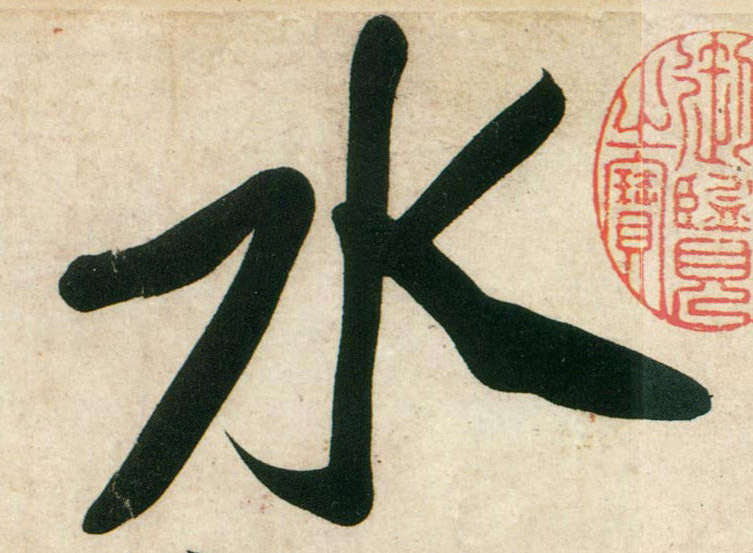 水
御覽之寶